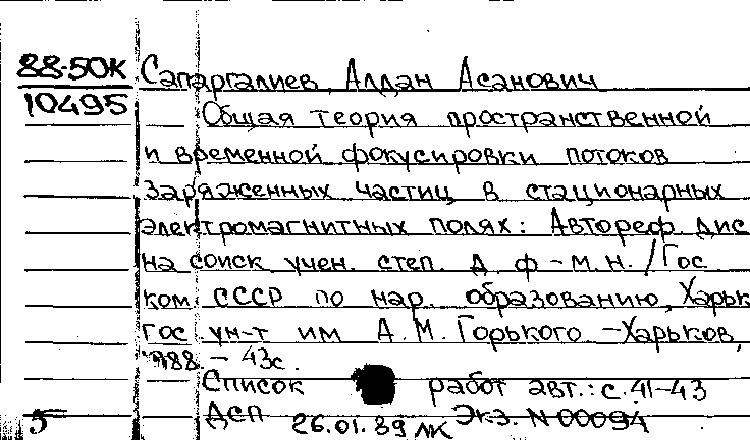 88-50К Сапаргалиев, Алдан Асанович
10495 Общая теория пространственной
и временной фокусировки потоков
заряженных частиц в стационарных
электромагнитных полях: Автореф. дис
на соиск. учен. степ. д. ф-м.н. / Гос
ком. СССР по нар. образованию, Харьк
гос ун-т им А.М. Горького. - Харьков,
1988. - 43с.
Список работ авт.: с. 41-43
5 Дсп 26.01.89 Экз. N 00094